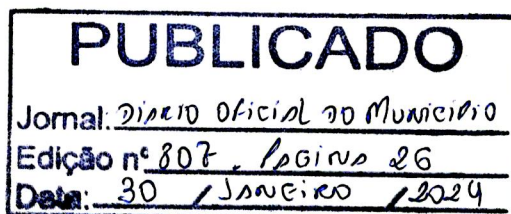 PUBLICADO
Jornal: DIÁRIO OFICIAL DO MUNICÍPIO
Edição nº 807. PÁGINA 26
Data: 30 / JANEIRO / 2024